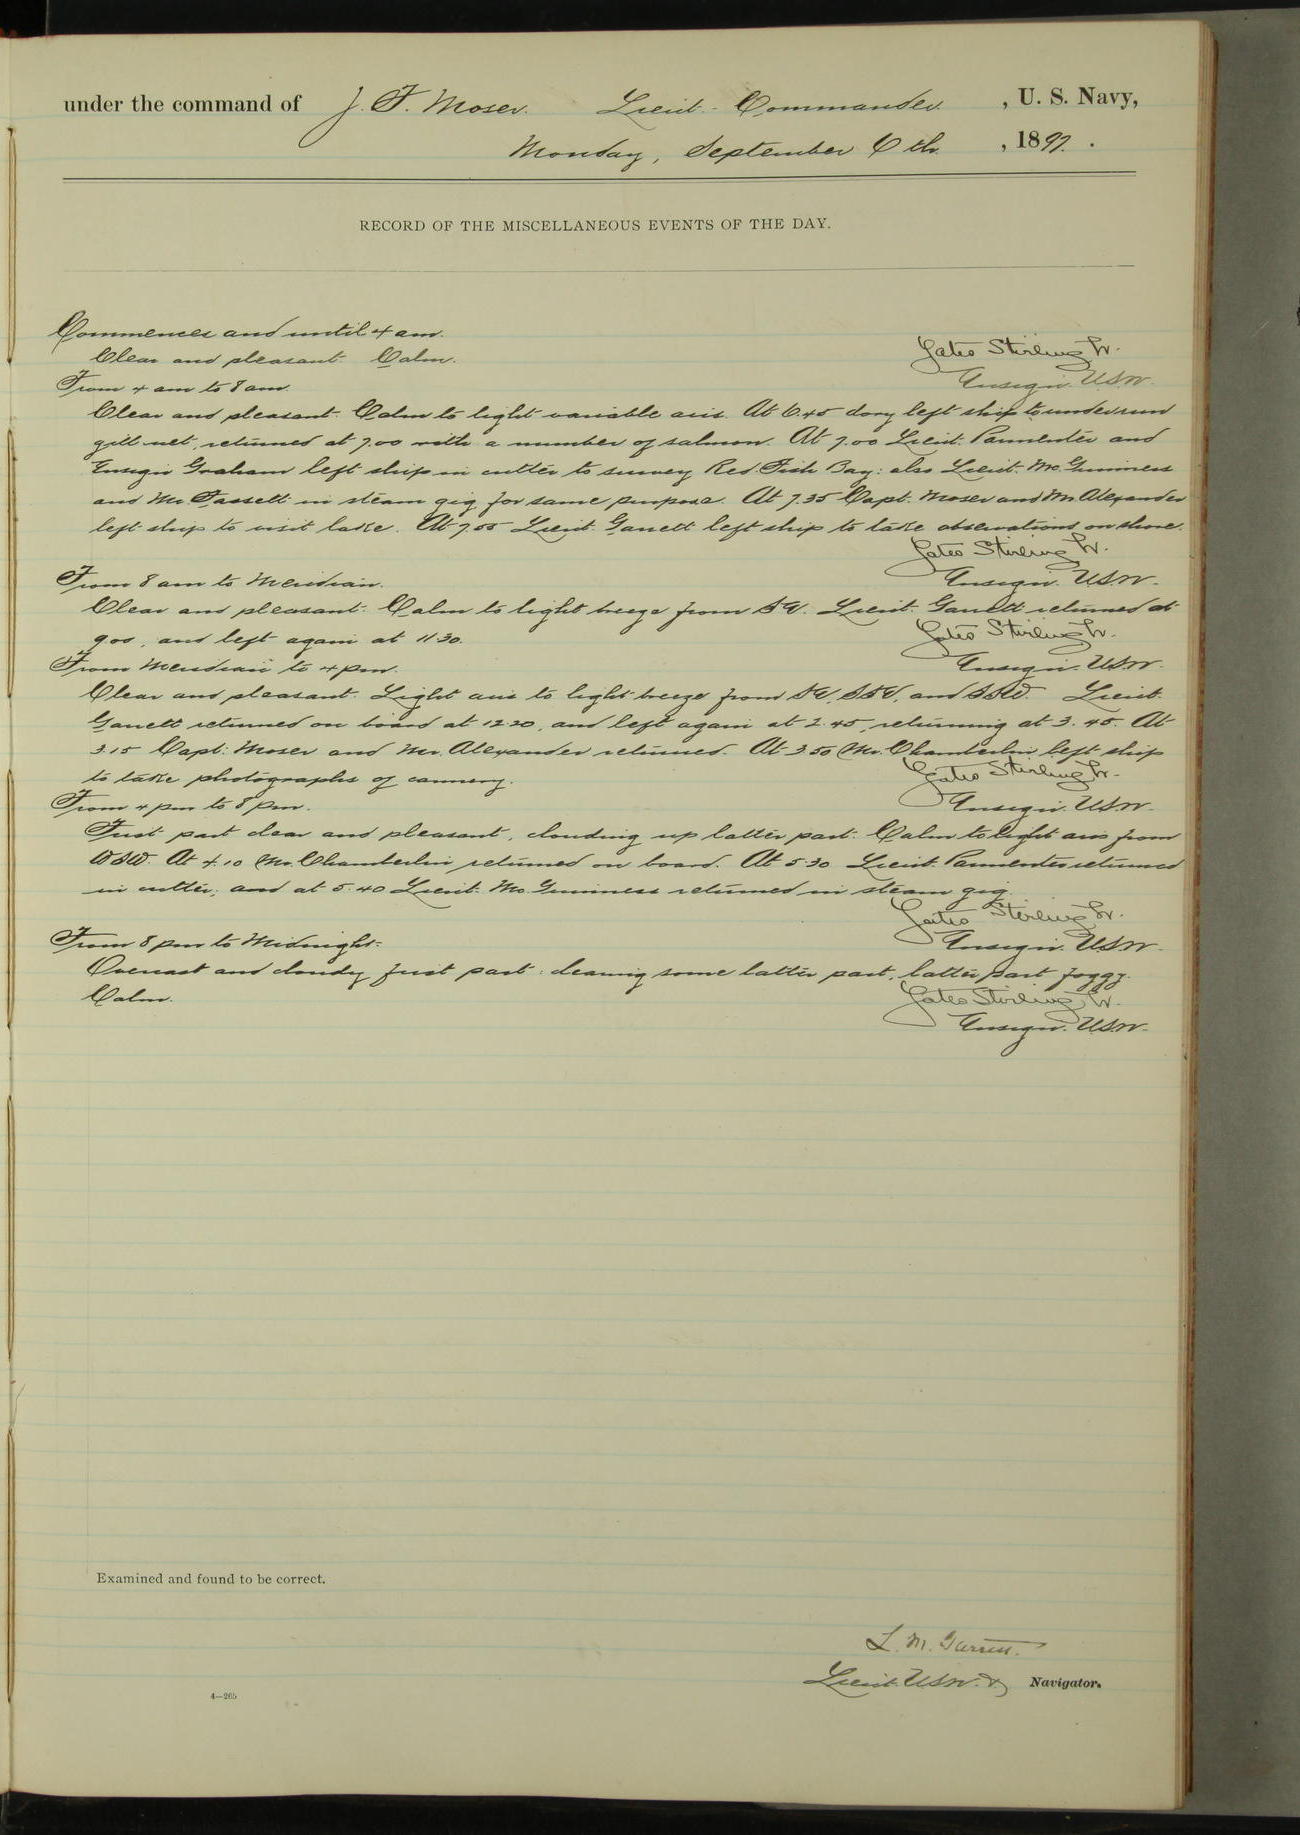 under the command of J. F. Moser. Lieut. Commander , U. S. Navy,
Monday, September 6th. , 1897.
RECORD OF THE MISCELLANEOUS EVENTS OF THE DAY.
Commences and until 4 am.
Clear and pleasant. Calm.
Yates Stirling Jr.
Ensign. U.S.N.
From 4 am to 8 am.
Clear and pleasant. Calm to light variable airs. At 6.45 dory left ship to underrun
gill net, returned at 7.00 with a number of salmon. At 7.00 Lieut. Parmenter and
Ensign Graham left ship in cutter to survey Red Fish Bay: also Lieut. McGuinness
and Mr. Fassett in steam gig for same purpose. At 7.35 Capt. Moser and Mr. Alexander
left ship to visit lake. At 7.55 Lieut. Garrett left ship to take observations on shore.
Yates Stirling Jr.
Ensign. U.S.N.
From 8 am to Meridian.
Clear and pleasant. Calm to light breeze from SW. Lieut. Garrett returned at
900, and left again at 11.30.
Yates Stirling Jr.
Ensign. U.S.N.
From Meridian to 4 pm.
Clear and pleasant. Light airs to light breeze from and SSW. Lieut.
Garrett returned on board at 12.20, and left again at 2.45, returning at 3.45. At
3.15 Capt. Moser and Mr. Alexander returned. At 3.50 Mr. Chamberlin left ship
to take photographs of cannery.
Yates Stirling Jr.
Ensign. U.S.N.
From 4 pm to 8 pm.
First part clear and pleasant, clouding up latter part. Calm to light airs from
WSW. At 4.10 Mr. Chamberlin returned on board. At 5.30 Lieut. Parmenter returned
in cutter; and at 5.40 Lieut. McGuinness returned in steam gig.
Yates Stirling Jr.
Ensign. U.S.N.
From 8 pm to Midnight.
Overcast and cloudy first part: clearing some latter part, latter part foggy.
Calm.
Yates Stirling Jr.
Ensign. U.S.N.
Examined and found to be correct.
L. M. Garrett.
Lieut. U.S.N. & Navigator.
4—265